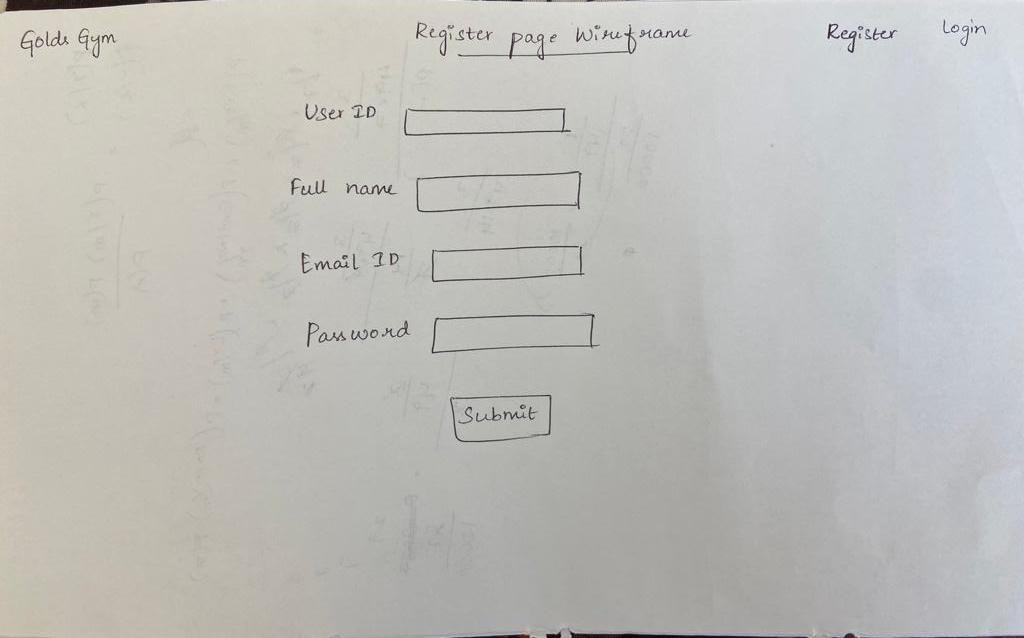 Golds Gym
Register page Wireframe
Register
Login
User ID
Full name
Email ID
Password
Submit